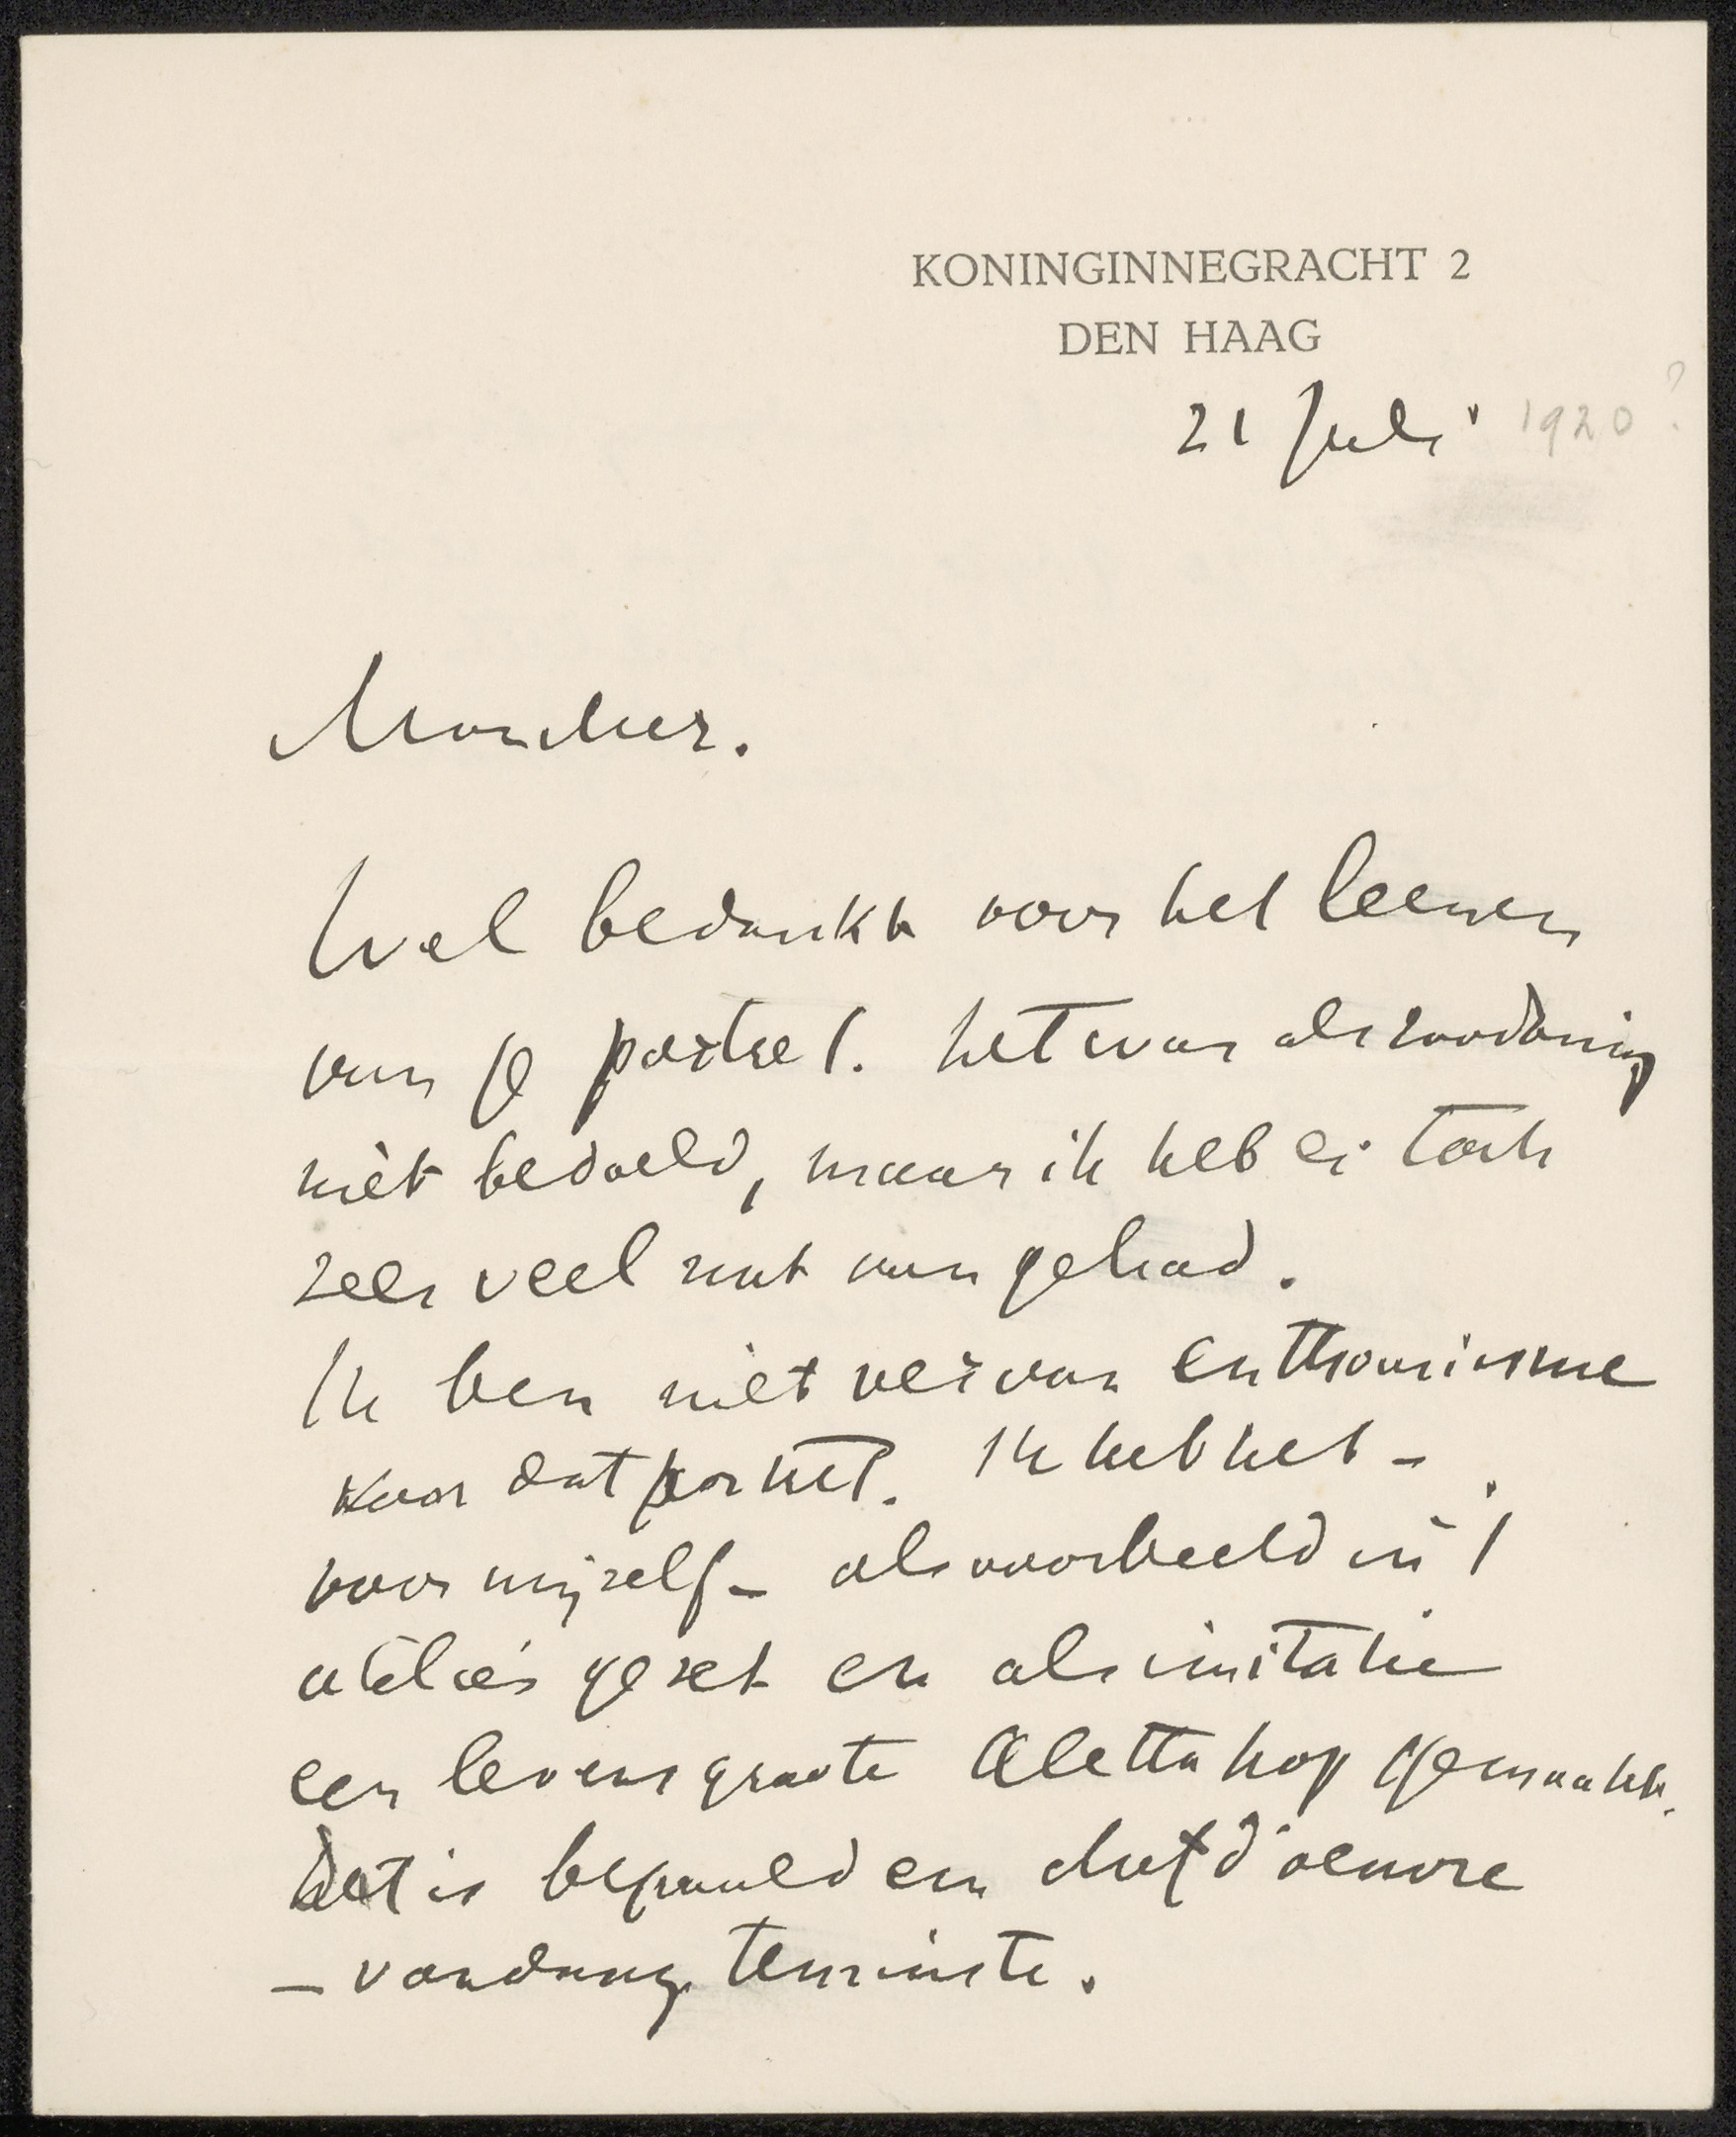 KONINGINNEGRACHT 2
DEN HAAG
21 Juli 1920?
Moncher.
Wel bedankt voor het leenen
van je portret. het was als zoodanig
niet bedoeld, maar ik heb er toch
zeer veel nut van gehad.
Ik ben niet ver van enthousiasme
voor dat portret. Ik heb het -
voor mijzelf - als voorbeeld in 't
atelier gezet en als imitatie
een levensgroote Aletta kop gemaakt.
Het is bepaald een chef d'oeuvre
- vandaag tenminste.